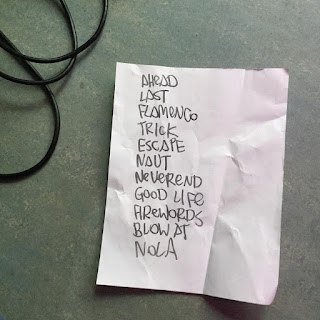 AHEAD
LAST
FLAMENCO
TRICK
ESCAPE
NAUT
NEVEREND
GOOD LIFE
FIREWORDS
BLOW AT
NOLA